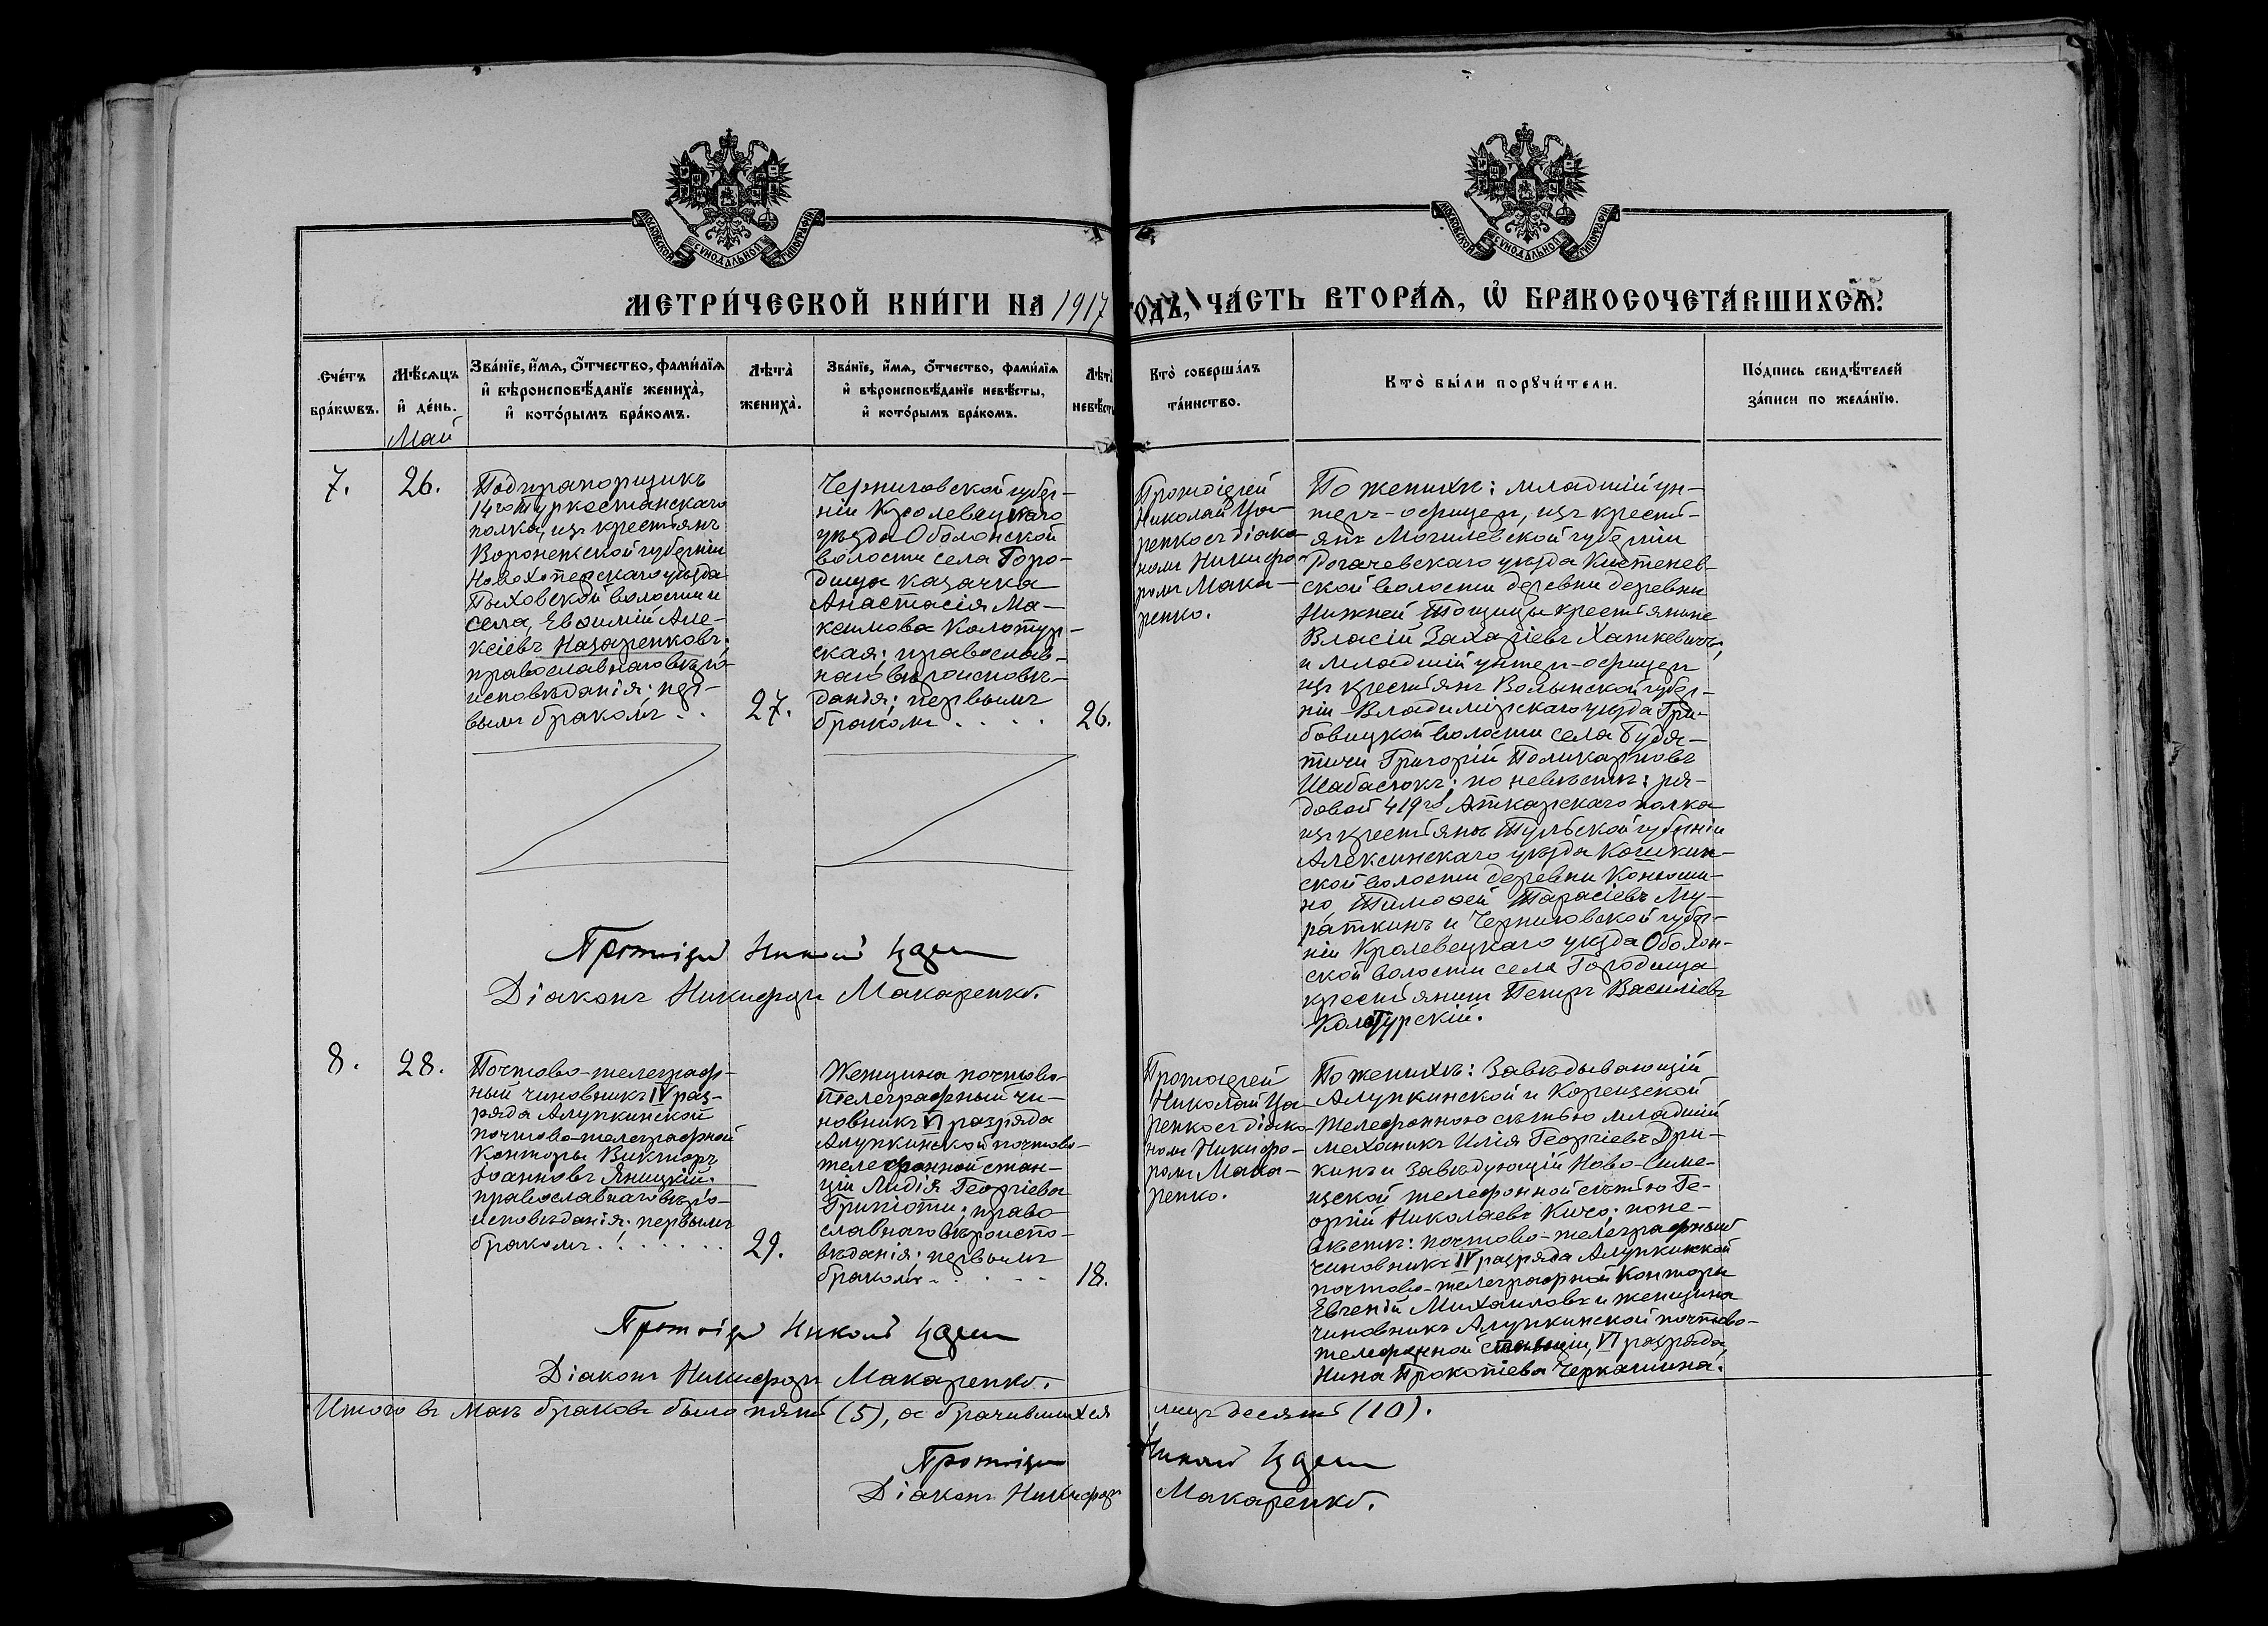 МОСКОВСКОЙ СѴНОДАЛЬНОЙ ТИПОГРАФІИ
МОСКОВСКОЙ СѴНОДАЛЬНОЙ ТИПОГРАФІИ
МЕТРИ́ЧЕСКОЙ КНИ́ГИ НА 1917 ГОДЪ, ЧА́СТЬ ВТОРА́Ѧ, Ѡ БРАКОСОЧЕТА́ВШИХСѦ.
Сче́тъ бра́кѡвъ.
Мѣ́сѧцъ и҆ де́нь.
Май
Зва́нїе, и҆́мѧ, ѻ҆́тчество, фами́лїѧ
и҆ вѣроисповѣ́данїе жениха̀,
и҆ кото́рымъ бра́комъ.
Лѣта̀ жениха̀.
Зва́нїе, и҆́мѧ, ѻ҆́тчество, фами́лїѧ
и҆ вѣроисповѣ́данїе невѣ́сты,
и҆ кото́рымъ бра́комъ.
Лѣта̀ невѣ́сты
Кто̀ соверша́лъ
та́инство.
Кто̀ бы́ли порꙋчи́тели.
По́дпись свидѣ́телей
за́писи по жела́нїю.
7.
26.
Подпрапорщикъ
14го Туркестанскаго
полка, изъ крестьянъ
Воронежской губерніи
Новохоперскаго уѣзда
Пыховской волости и
села, Евѳимій Але-
ксіевъ Назаренковъ;
православнаго вѣро-
исповѣданія; пер-
вымъ бракомъ . .
27.
Черниговской губер-
ніи Кролевецкаго
уѣзда Оболонской
волости села Горо-
дища казачка
Анастасія Ма-
ксимова Колотур-
ская; православ-
наго вѣроисповѣ-
данія; первымъ
бракомъ . . . .
26.
Протоіерей
Николай Ца-
ренко съ діако-
номъ Никифо-
ромъ Мака-
ренко.
По женихѣ: младшій ун-
теръ-офицеръ, изъ кресть-
янъ Могилевской губерніи
Рогачевскаго уѣзда Кистенев-
ской волости деревни деревни
Нижней Тощицы крестьянине
Власій Захаріевъ Хаткевичъ,
и младшій унтер-офицеръ
изъ крестьянъ Волынской губер-
ніи Владимірскаго уѣзда Гри-
бовицкой волости села Будя-
тичи Григорій Поликарповъ
Шабасюкъ; по невѣстѣ: ря-
довой 419го Аткарскаго полка
изъ крестьянъ Тульской губерніи
Алексинскаго уѣзда Кошкин-
ской волости деревни Конюши-
но, Тимоѳей Тарасіевъ Му-
раткинъ и Черниговской губер-
ніи Кролевецкаго уѣзда Оболон-
ской волости села Городища
крестьянинъ Петръ Василіевъ
Колотурскій.
Протоіерей Николай Царенко
Діаконъ Никифоръ Макаренко.
8.
28.
Почтово-телеграф-
ный чиновникъ IV раз-
ряда Алупкинской
почтово-телеграфной
Конторы Викторъ
Іоанновъ Яницкій.
православнаго вѣро-
исповѣданія; первымъ
бракомъ . . . . . . .
29.
Женщина почтово-
телеграфный чи-
новникъ VI разряда
Алупкинской почтово-
телефонной стан-
ціи Лидія Георгіева
Грипіоти; право-
славнаго вѣроиспо-
вѣданія; первымъ
бракомъ . . . . .
18.
Протоіерей
Николай Ца-
ренко съ діако-
номъ Никифо-
ромъ Мака-
ренко.
По женихѣ: Завѣдывающій
Алупкинской и Кореизской
телефонною сѣтью младшій
механикъ Илія Георгіевъ Дри-
кинъ и Завѣдующій Ново-Симе-
изской телефонной сѣтью Ге-
оргій Николаевъ Кичо; по не-
вѣстѣ: почтово-телеграфный
чиновникъ IV разряда Алупкинской
почтово-телеграфной Конторы
Евгеній Михаиловъ и женщина
чиновникъ Алупкинской почтово-
телефонной станціи, VI разряда,
Нина Прокопіева Черкашина.
Протоіерей Николай Царенко
Діаконъ Никифоръ Макаренко.
Итого въ маѣ браковъ было пять (5), а брачившихся лицъ десять (10).
Протоіерей Николай Царенко
Діаконъ Никифоръ Макаренко.